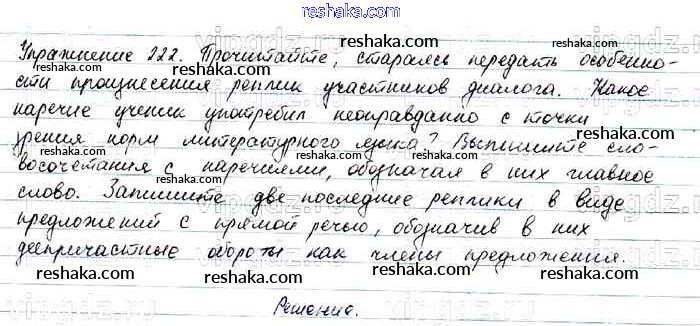 reshaka.com
Упражнение 222. Прочитайте, стараясь передать особенно-
reshaka.com reshaka.com reshaka.com
сти произнесения реплик участников диалога. Какое
наречие ученик употребил неоправданно с точки
reshaka.com reshaka.com reshaka.com
зрения норм литературного языка? Выпишите сло-
восочетания с наречиями, обозначая в них главное
reshaka.com reshaka.com reshaka.com
слово. Запишите две последние реплики в виде
предложений с прямой речью, обозначив в них
reshaka.com reshaka.com reshaka.com
деепричастные обороты как члены предложения.
reshaka.com reshaka.com reshaka.com
Решение.